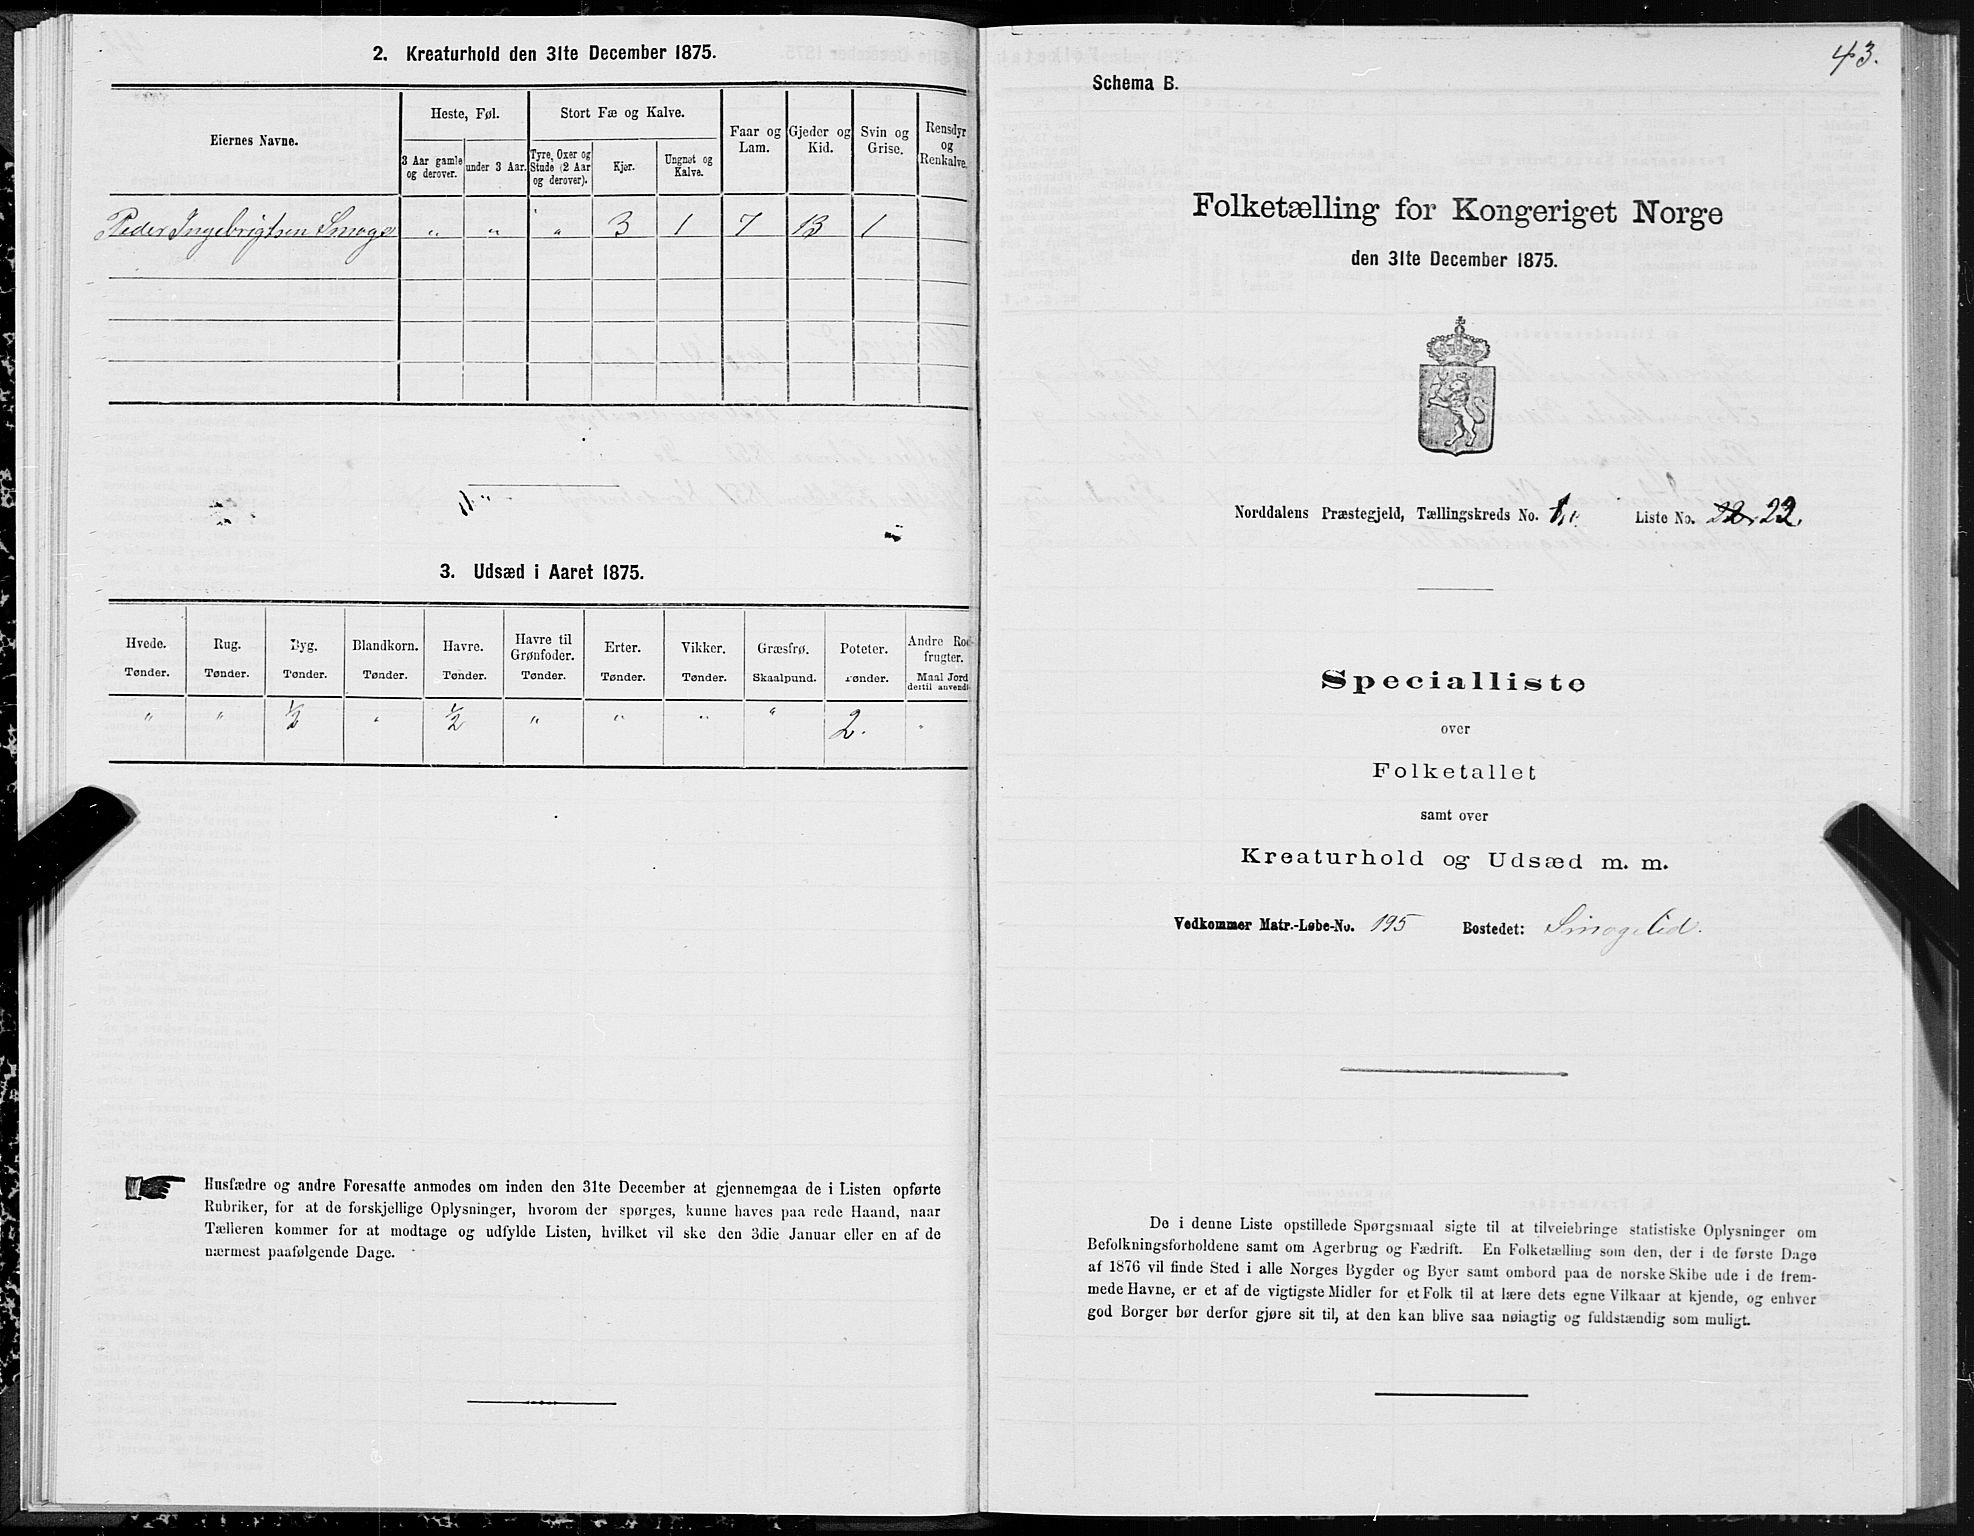 2. Kreaturhold den 31te December 1875.
Eiernes Navne.
Heste, Føl.
Stort Fæ og Kalve.
Faar og Lam.
Gjeder og Kid.
Svin og Grise.
Rensdyr og Renkalve.
3 Aar gamle og derover.
under 3 Aar.
Tyre, Oxer og Stude (2 Aar og derover).
Kjør.
Ungnøt og Kalve.
Peder Ingebrigtsen Smoge " " " 3 1 7 13 1
3. Udsæd i Aaret 1875.
Hvede. Rug. Byg. Blandkorn. Havre. Havre til Grønfoder. Erter. Vikker. Græsfrø. Poteter. Andre Rodfrugter.
Tønder. Tønder. Tønder. Tønder. Tønder. Tønder. Tønder. Tønder. Skaalpund. Tønder. Maal Jord dertil anvendt.
" " ½ " ½ " " " " 2. "
Husfædre og andre Foresatte anmodes om inden den 31te December at gjennemgaa de i Listen opførte
Rubriker, for at de forskjellige Oplysninger, hvorom der spørges, kunne haves paa rede Haand, naar
Tælleren kommer for at modtage og udfylde Listen, hvilket vil ske den 3die Januar eller en af de
nærmest paafølgende Dage.
43.
Schema B.
Folketælling for Kongeriget Norge
den 31te December 1875.
Norddalens Præstegjeld, Tællingskreds No. 1. Liste No. 22. 22.
Specialliste
over
Folketallet
samt over
Kreaturhold og Udsæd m. m.
Vedkommer Matr.-Løbe-No. 195 Bostedet: Smogelid.
De i denne Liste opstillede Spørgsmaal sigte til at tilveiebringe statistiske Oplysninger om
Befolkningsforholdene samt om Agerbrug og Fædrift. En Folketælling som den, der i de første Dage
af 1876 vil finde Sted i alle Norges Bygder og Byer samt ombord paa de norske Skibe ude i de frem-
mede Havne, er et af de vigtigste Midler for et Folk til at lære dets egne Vilkaar at kjende, og enhver
god Borger bør derfor gjøre sit til, at den kan blive saa nøiagtig og fuldstændig som muligt.